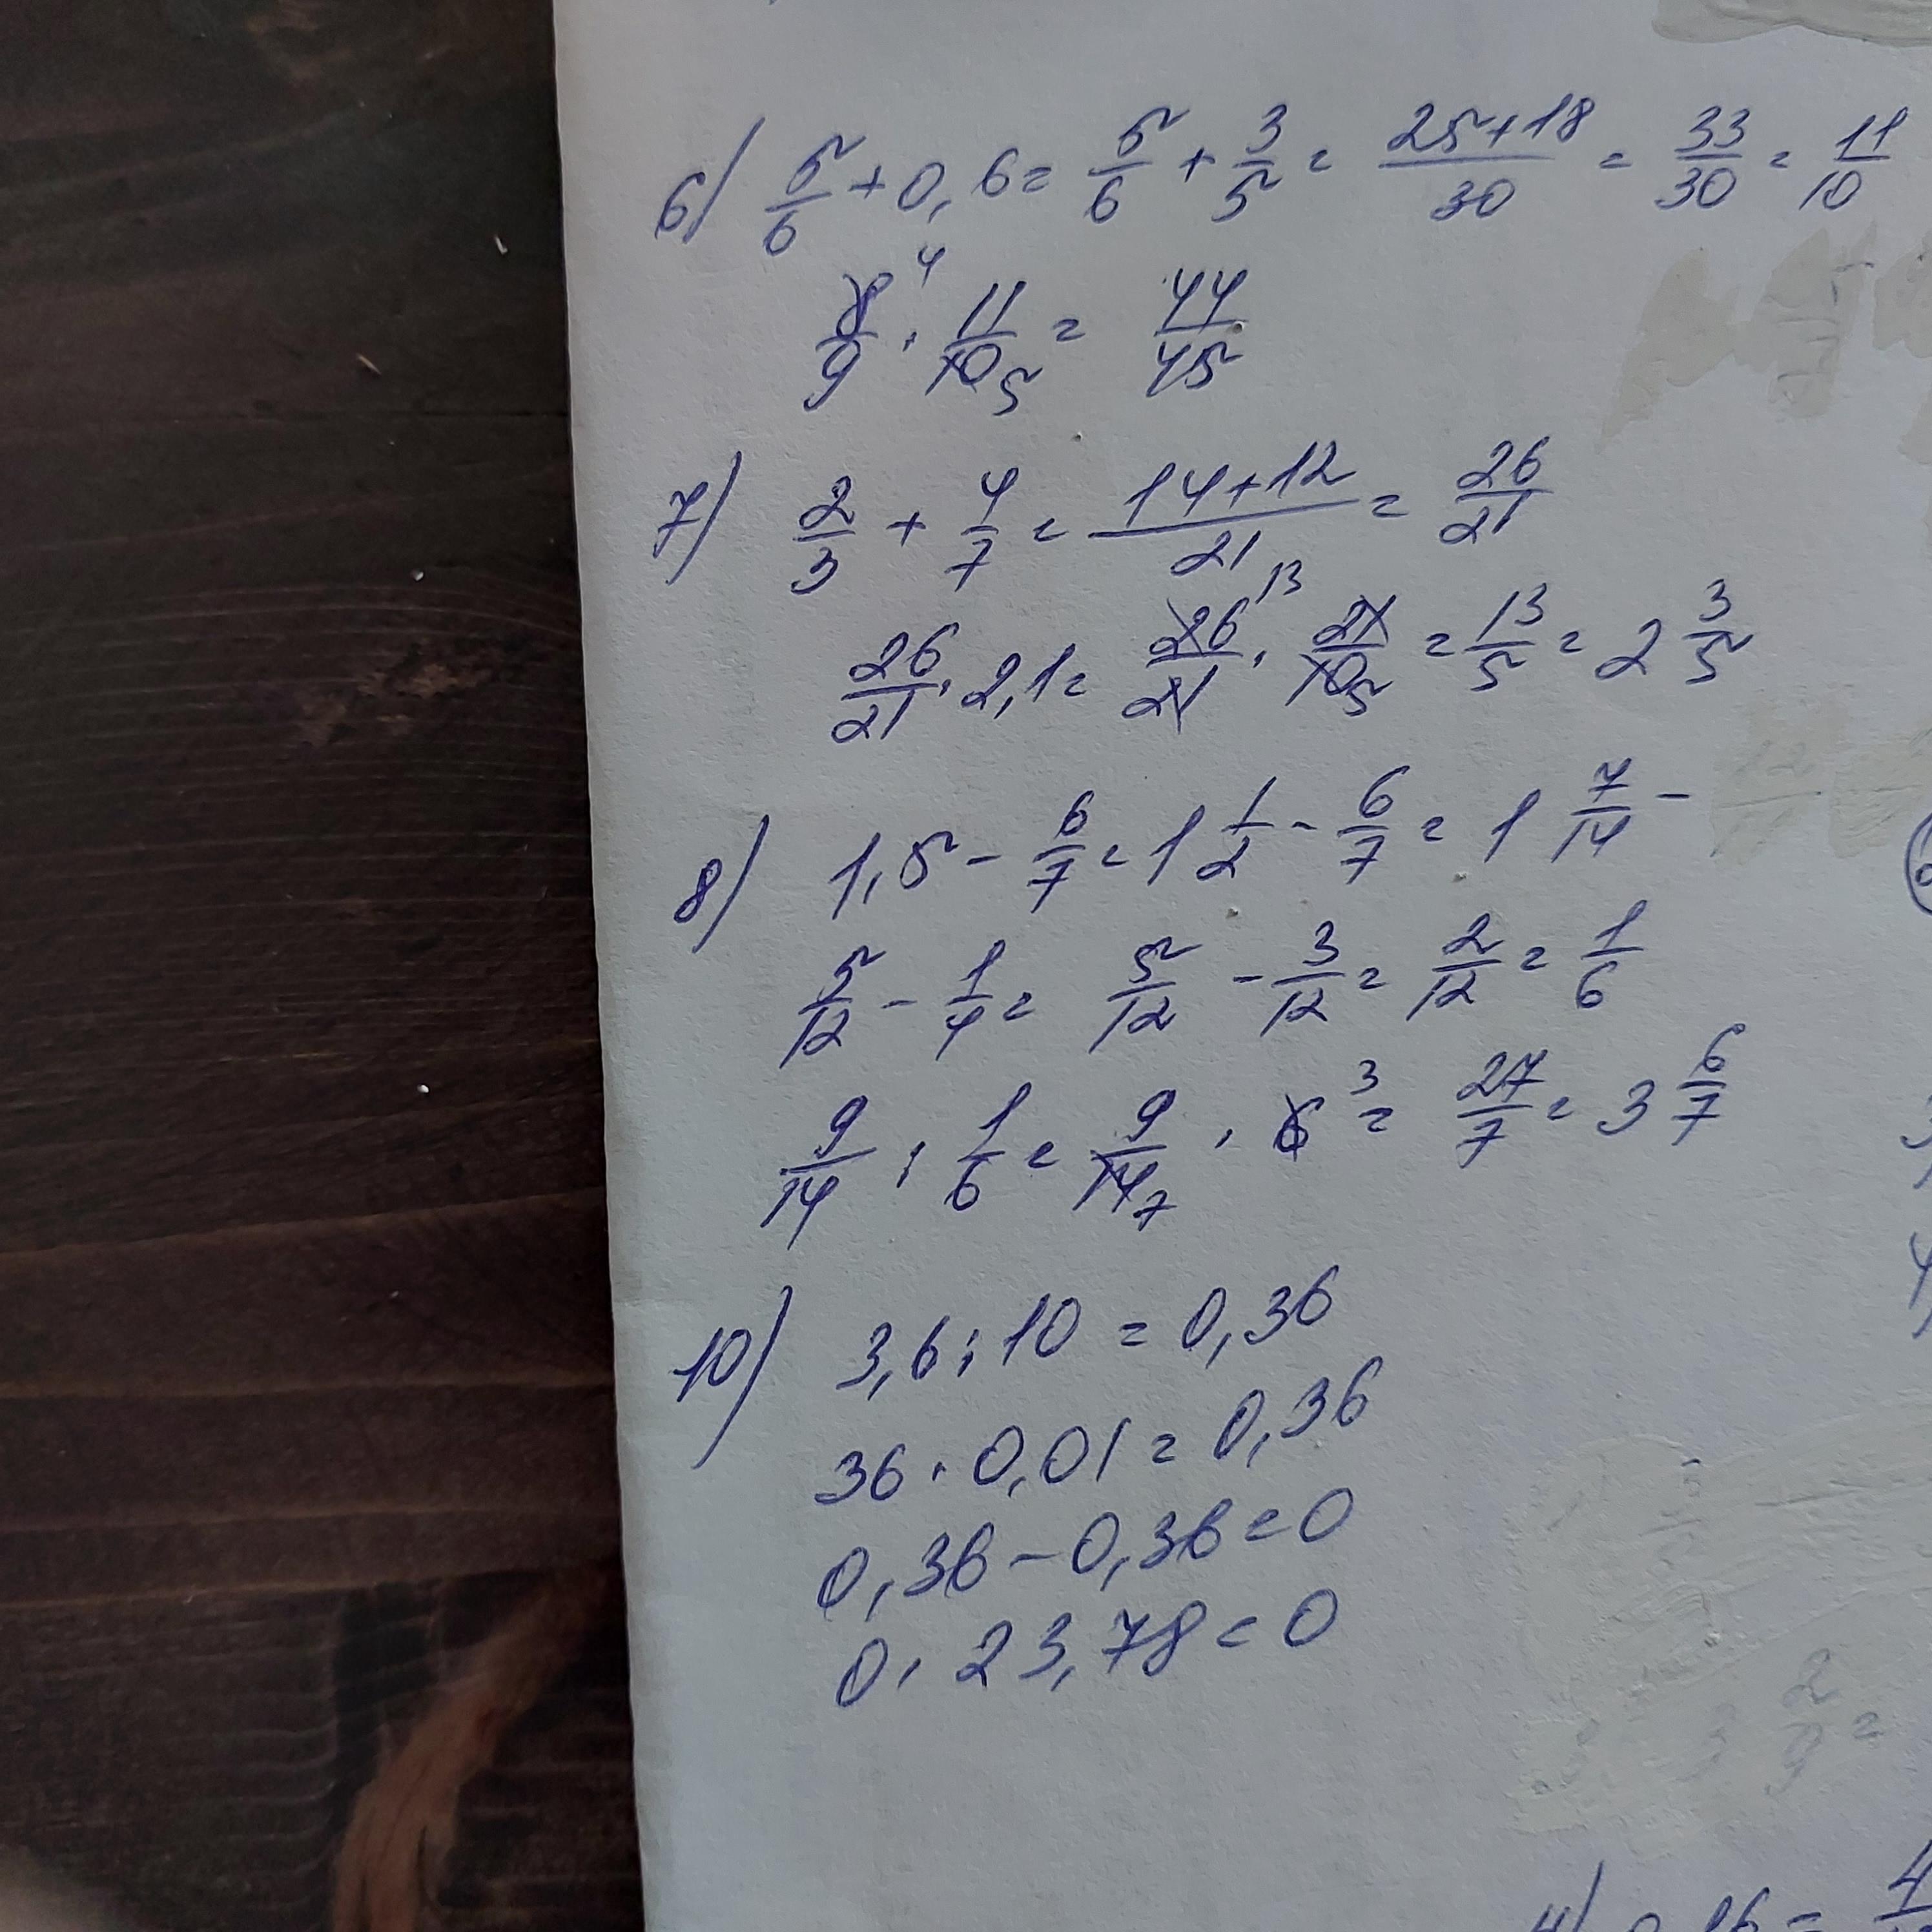 6) 5/6 + 0,6 = 5/6 + 3/5 = (25+18)/30 = 33/30 = 11/10
8/9 4 · 11/10 5 = 44/45
7) 2/3 + 4/7 = (14+12)/21 = 26/21
26/21 · 2,1 = 26/21 13 · 21/10 5 = 13/5 = 2 3/5
8) 1,5 - 6/7 = 1 1/2 - 6/7 = 1 7/14 -
5/12 - 1/4 = 5/12 - 3/12 = 2/12 = 1/6
9/14 : 1/6 = 9/14 7 · 6 3 = 27/7 = 3 6/7
10) 3,6 : 10 = 0,36
36 · 0,01 = 0,36
0,36 - 0,36 = 0
0 · 23,78 = 0
3 2/9 =